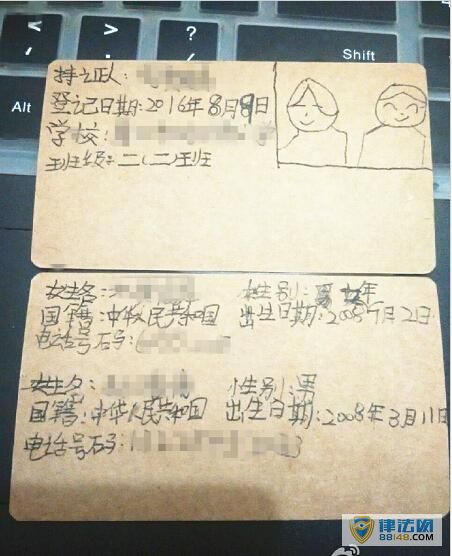 < > ?
Shift
Alt
持证人:
登记日期:2016年8月9日
学校:
班级:二(二)班
姓名: 性别:
国籍:中华民共和国 出生日期:2008年7月21日
电话号码:
姓名: 性别:男
国籍:中华人民共和国 出生日期:2008年3月11日
电话号码:
律法网
88148.com